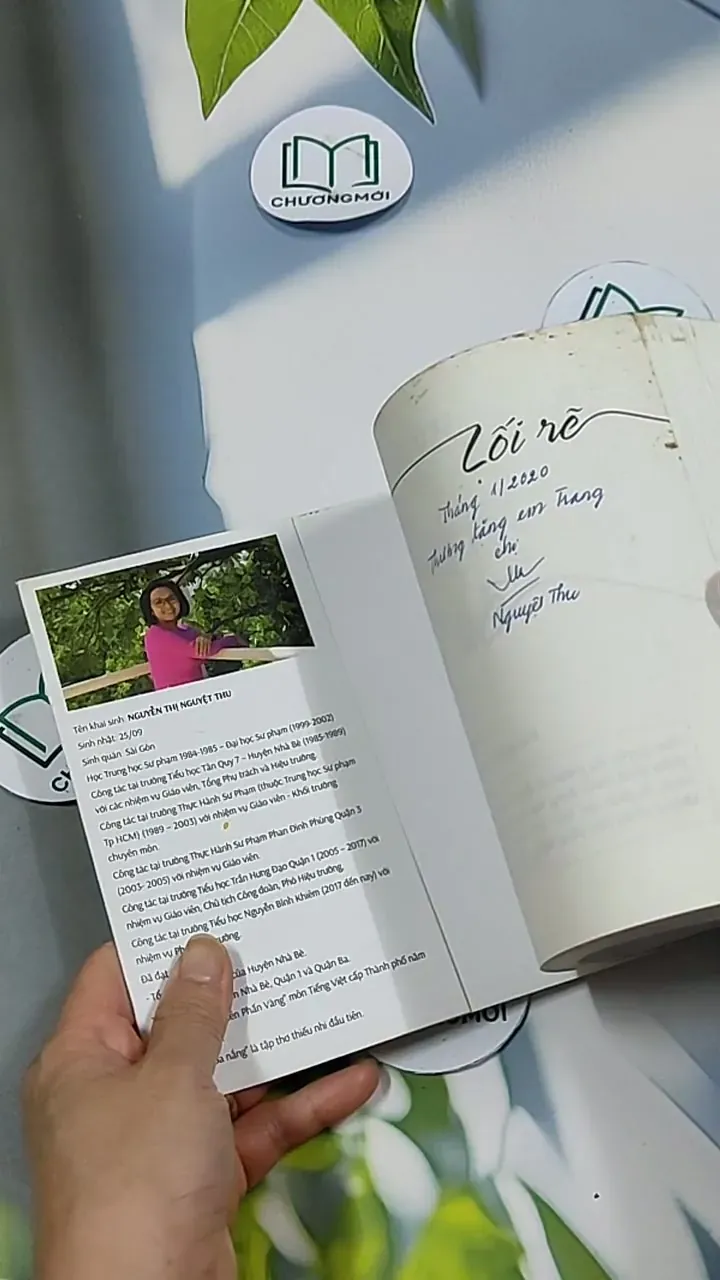 CHƯƠNGMỚI
Lối rẽ
Tháng 1/2020
Thương tặng em Trang
chị
Nguyệt Thu
Tên khai sinh: NGUYỄN THỊ NGUYỆT THU
Sinh nhật: 25/09
Sinh quán: Sài Gòn
Học Trung học Sư phạm 1984-1985 – Đại học Sư phạm (1999-2002)
Công tác tại trường Tiểu học Tân Quy 7 – Huyện Nhà Bè (1985-1989)
với các nhiệm vụ Giáo viên, Tổng Phụ trách và Hiệu trưởng.
Công tác tại trường Thực Hành Sư Phạm (thuộc Trung học Sư phạm
Tp HCM) (1989 – 2003) với nhiệm vụ Giáo viên - Khối trưởng
chuyên môn.
Công tác tại trường Thực Hành Sư Phạm Phan Đình Phùng Quận 3
(2003- 2005) với nhiệm vụ Giáo viên.
Công tác tại trường Tiểu học Trần Hưng Đạo Quận 1 (2005 – 2017) với
nhiệm vụ Giáo viên, Chủ tịch Công đoàn, Phó Hiệu trưởng.
Công tác tại trường Tiểu học Nguyễn Bỉnh Khiêm (2017 đến nay) với
nhiệm vụ
Đã đạt của Huyện Nhà Bè.
Nhà Bè, Quận 1 và Quận Ba.
Phấn Vàng" môn Tiếng Việt cấp Thành phố năm
nắng" là tập thơ thiếu nhi đầu tiên.